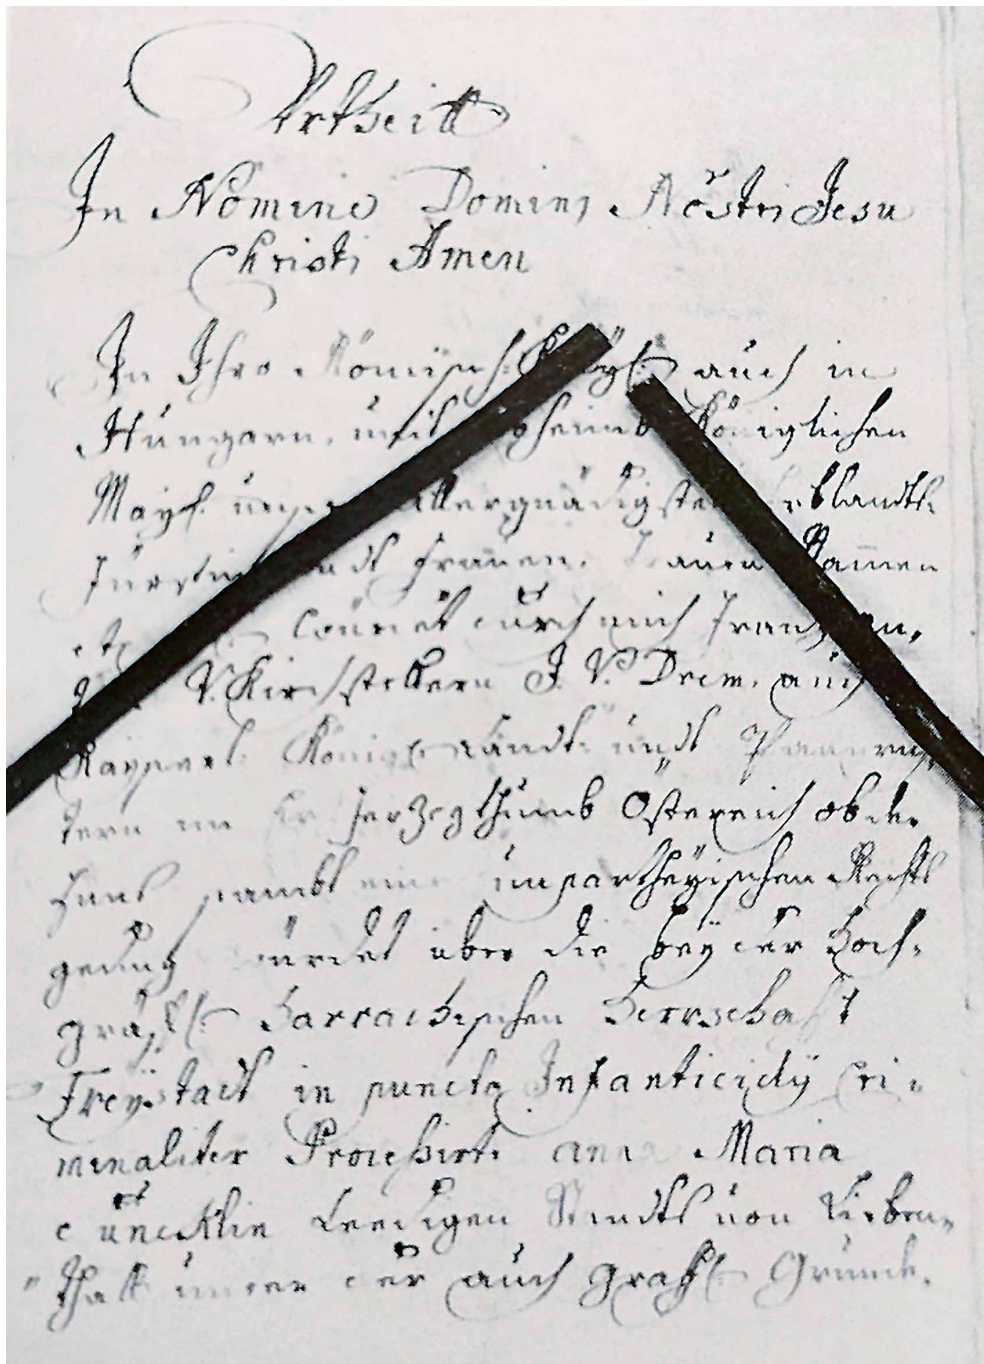 Urtheill
In Nomine Domini Nostri Jesu
Christi Amen
In Ihro Römisch: auch in
Hungarn, Königlichen
Mayl: Allergnädigste Erblandts
Fürstin undt Frauen, Frauen Nammen
etc: durch mich Frantz
V. Kirchstettern J. V. Drem. auch
Kayserl: Königl: Landt: undt
tern im Er Herzogthumb Österreich ob der
Enns sambt einem unpartheyischen Rechts
geding würdet über die bey der Hoch,
gräfl: Harrachischen Herrschafft
Freystatt in puncto Infanticidÿ cri,
minaliter Procehsirte anna Maria
Leedigen Standts von Lieben,
thall unter der auch Gräfl: Grundt,